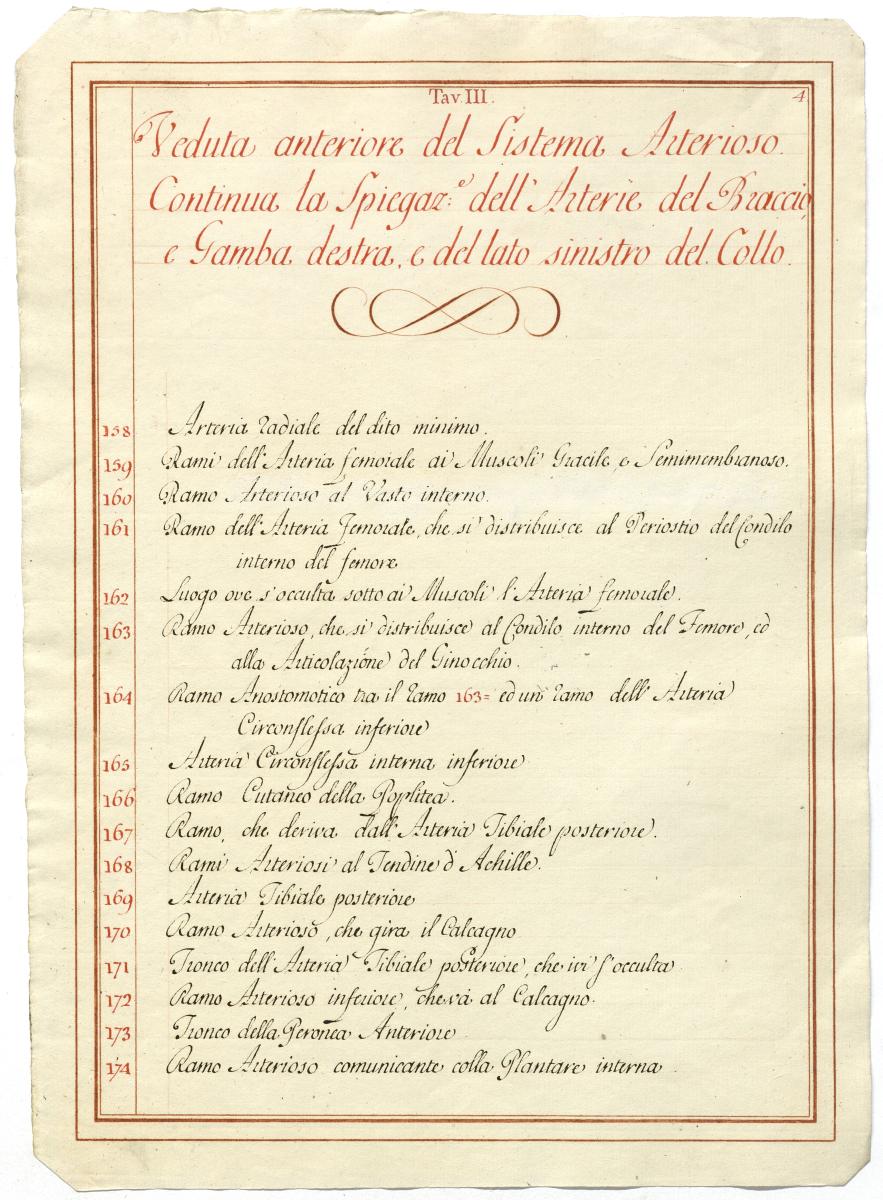 Tav. III.
4
Veduta anteriore del Sistema Arterioso.
Continua la Spiegaz:e dell'Arterie del Braccio,
e Gamba destra, e del lato sinistro del Collo.
158 Arteria radiale del dito minimo.
159 Rami dell'Arteria femorale ai Muscoli Gracile, e Semimembranoso.
160 Ramo Arterioso al Vasto interno.
161 Ramo dell'Arteria Femorale, che si distribuisce al Periostio del Condilo
interno del femore
162 Luogo ove s'occulta sotto ai Muscoli l'Arteria femorale.
163 Ramo Arterioso, che si distribuisce al Condilo interno del Femore, ed
alla Articolazione del Ginocchio.
164 Ramo Anostomotico tra il ramo 163= ed un ramo dell'Arteria
Circonflessa inferiore
165 Arteria Circonflessa interna inferiore
166 Ramo Cutaneo della Poplitea.
167 Ramo, che deriva dall'Arteria Tibiale posteriore.
168 Rami Arteriosi al Tendine d'Achille.
169 Arteria Tibiale posteriore
170 Ramo Arterioso, che gira il Calcagno
171 Tronco dell'Arteria Tibiale posteriore, che ivi s'occulta
172 Ramo Arterioso inferiore, che và al Calcagno.
173 Tronco della Peronea Anteriore
174 Ramo Arterioso comunicante colla Plantare interna